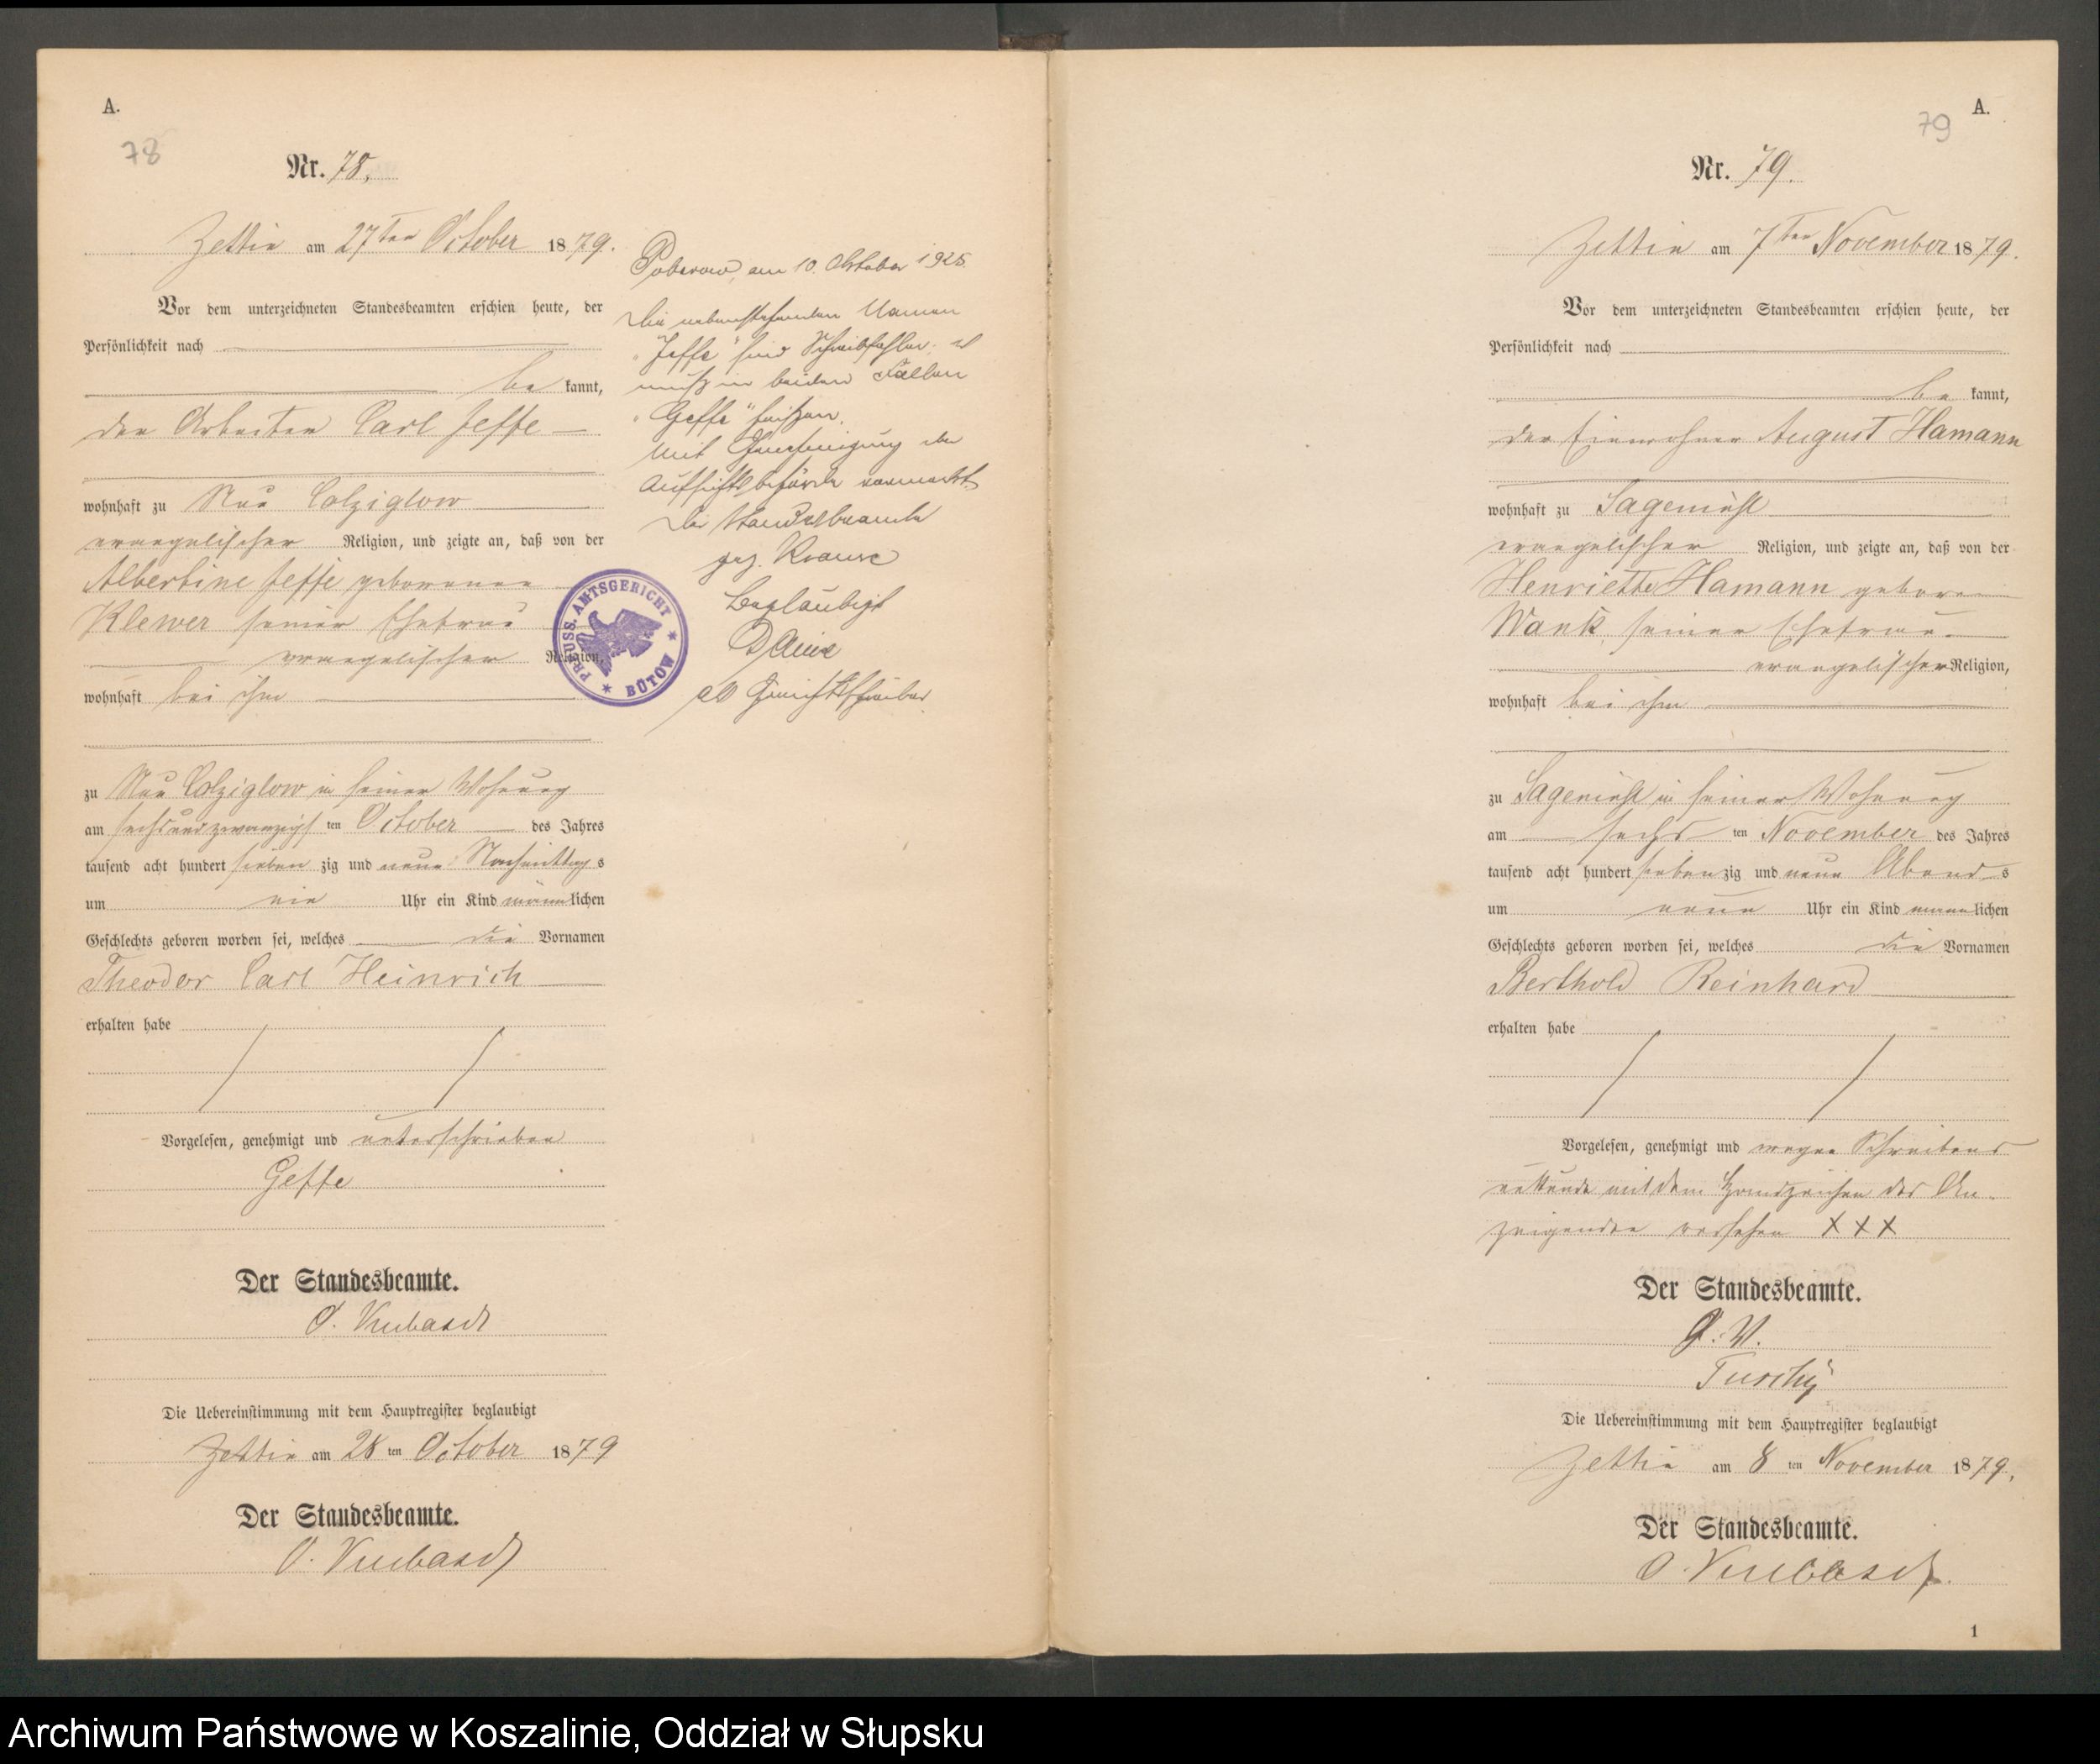 A.
78
Nr. 78.
Zettin am 27ten October 1879.
Vor dem unterzeichneten Standesbeamten erschien heute, der
Persönlichkeit nach
be kannt,
der Arbeiter Carl Jeffe
wohnhaft zu Neu Colziglow
evangelischer Religion, und zeigte an, daß von der
Albertine Jeffe geborenen
Klewer seiner Ehefrau
evangelischer Religion,
wohnhaft bei ihm
zu Neu Colziglow in seiner Wohnung
am sechsundzwanzigs ten October des Jahres
tausend acht hundert sieben zig und neun Nachmittags
um ein Uhr ein Kind männlichen
Geschlechts geboren worden sei, welches die Vornamen
Theodor Carl Heinrich
erhalten habe
Vorgelesen, genehmigt und unterschrieben
Geffe
Der Standesbeamte.
Die Uebereinstimmung mit dem Hauptregister beglaubigt
Zettin am 28 ten October 1879
Der Standesbeamte.
Poberow, am 10. Oktober 1925.
Die nebenstehenden Namen
"Jeffe" sind Schreibfehler. es
muß in beiden Fällen
"Geffe" heißen.
Mit Genehmigung der
Aufsichtsbehörde vermerkt.
Der Standesbeamte
gez. Krause
Beglaubigt
als Gerichtsschreiber.
PREUSS. AMTSGERICHT
* BÜTOW *
A.
79
Nr. 79.
Zettin am 7ten November 1879.
Vor dem unterzeichneten Standesbeamten erschien heute, der
Persönlichkeit nach
be kannt,
der Einwohner August Hamann
wohnhaft zu Sagemühl
evangelischer Religion, und zeigte an, daß von der
Henriette Hamann geboren
Wank, seiner Ehefrau
evangelischer Religion,
wohnhaft bei ihm
zu Sagemühl in seiner Wohnung
am sechs ten November des Jahres
tausend acht hundert sieben zig und neun Abends
um neun Uhr ein Kind männlichen
Geschlechts geboren worden sei, welches die Vornamen
Berthold Reinhard
erhalten habe
Vorgelesen, genehmigt und wegen Schreibens
unkunde mit dem Handzeichen des An-
zeigenden versehen XXX
Der Standesbeamte.
Die Uebereinstimmung mit dem Hauptregister beglaubigt
Zettin am 8 ten November 1879.
Der Standesbeamte.
1
Archiwum Państwowe w Koszalinie, Oddział w Słupsku